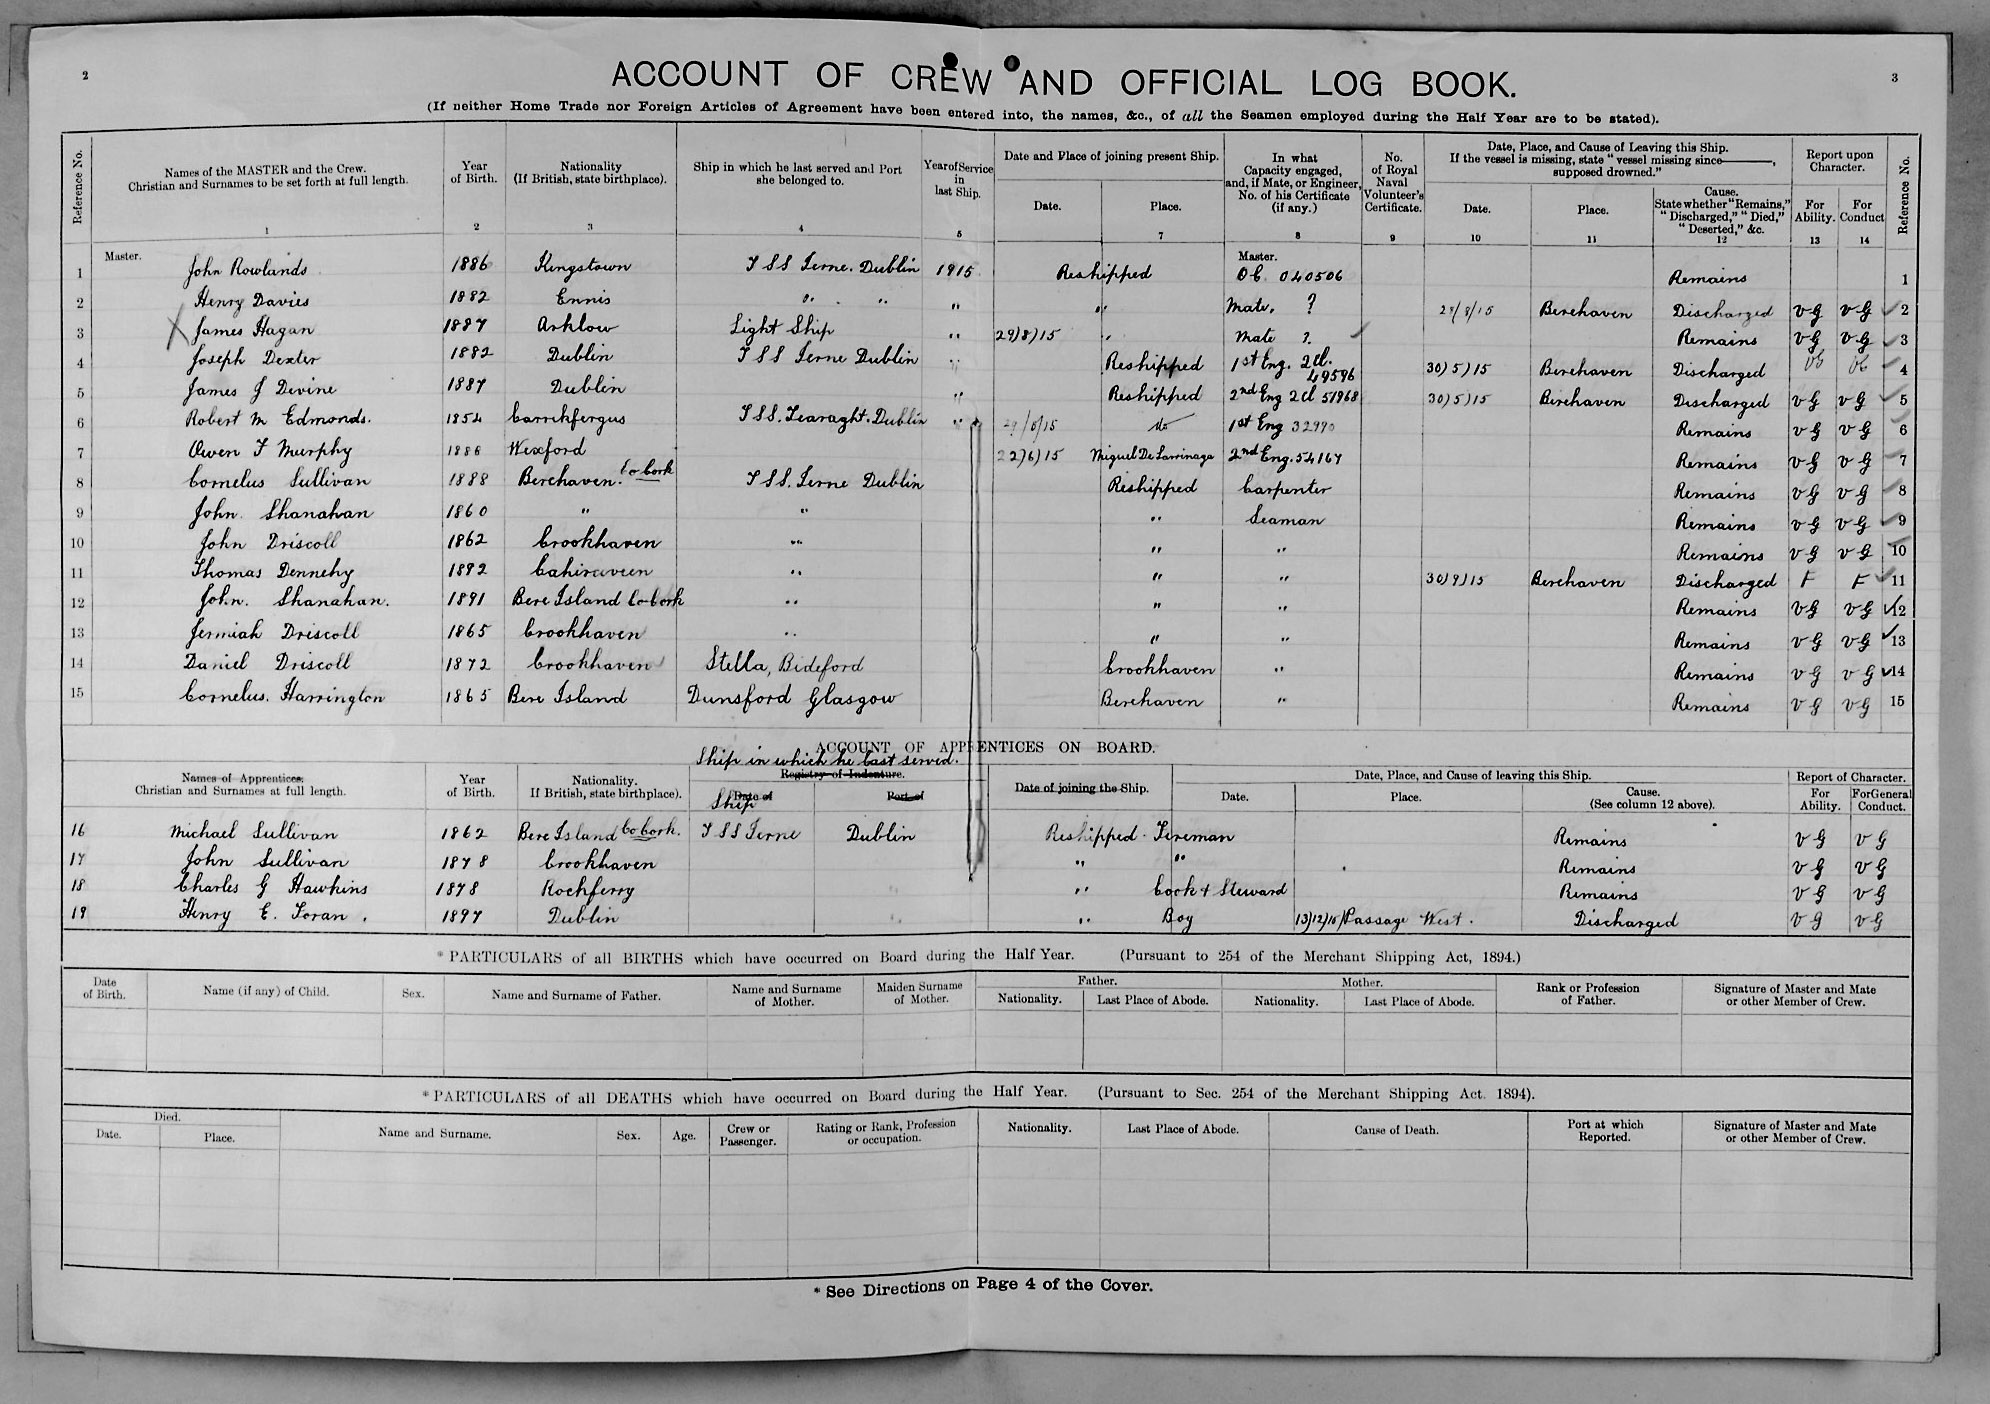 2
3
ACCOUNT OF CREW AND OFFICIAL LOG BOOK.
(If neither Home Trade nor Foreign Articles of Agreement have been entered into, the names, &c., of all the Seamen employed during the Half Year are to be stated).
Reference No. Names of the MASTER and the Crew. Christian and Surnames to be set forth at full length. 1 Year of Birth. 2 Nationality (If British, state birthplace). 3 Ship in which he last served and Port she belonged to. 4 Year of Service in last Ship. 5 Date and Place of joining present Ship. Date. Place. 7 In what Capacity engaged, and, if Mate, or Engineer, No. of his Certificate (if any.) 8 No. of Royal Naval Volunteer's Certificate. 9 Date, Place, and Cause of Leaving this Ship. If the vessel is missing, state "vessel missing since ——, supposed drowned." Date. 10 Place. 11 Cause. State whether "Remains," "Discharged," "Died," "Deserted," &c. 12 Report upon Character. For Ability. 13 For Conduct 14 Reference No.
1 Master. John Rowlands 1886 Kingstown T S S Ierne. Dublin 1915 Reshipped Master. O C. 040506 Remains 1
2 Henry Davies 1882 Ennis " " " " Mate. ? 28/8/15 Berehaven Discharged V G V G 2
3 X James Hagan 1887 Arklow Light Ship " 29/8/15 " Mate ? Remains V G V G 3
4 Joseph Dexter 1882 Dublin T S S Ierne Dublin " Reshipped 1st Eng. 2Cl. 49596 30/5/15 Berehaven Discharged VG VG 4
5 James J Devine 1887 Dublin " Reshipped 2nd Eng 2Cl 51968 30/5/15 Berehaven Discharged V G V G 5
6 Robert M Edmonds. 1854 Carrikfergus T.S.S. Tearaght. Dublin " /5/15 do 1st Eng 32990 Remains V G V G 6
7 Owen F Murphy 1888 Wexford 22/6/15 Miguel De Larrinaga 2nd Eng. 54167 Remains V G V G 7
8 Cornelus Sullivan 1888 Berehaven. Co Cork T S S. Ierne Dublin Reshipped Carpenter Remains V G V G 8
9 John Shanahan 1860 " " " Seaman Remains V G V G 9
10 John Driscoll 1862 Crookhaven " " " Remains V G V G 10
11 Thomas Dennehy 1892 Cahiraveen " " " 30/9/15 Berehaven Discharged F F 11
12 John. Shanahan. 1891 Bere Island Co Cork " " " Remains V G V G 12
13 Jermiah Driscoll 1865 Crookhaven " " " Remains V G V G 13
14 Daniel Driscoll 1872 Crookhaven Stella, Bideford Crookhaven " Remains V G V G 14
15 Cornelus. Harrington 1865 Bere Island Dunsford Glasgow Berehaven " Remains V G V G 15
ACCOUNT OF APPRENTICES ON BOARD.
Ship in which he last served.
Names of Apprentices. Christian and Surnames at full length. Year of Birth. Nationality. If British, state birthplace). Registry of Indenture. Date of Ship Port of Date of joining the Ship. Date, Place, and Cause of leaving this Ship. Date. Place. Cause. (See column 12 above). Report of Character. For Ability. For General Conduct.
16 Michael Sullivan 1862 Bere Island Co Cork. T S S Ierne Dublin Reshipped Fireman Remains V G V G
17 John Sullivan 1878 Crookhaven " " Remains V G V G
18 Charles G Hawkins 1878 Rockferry " Cook & Steward Remains V G V G
19 Henry E. Toran. 1897 Dublin " Boy 13/12/15 Passage West. Discharged V G V G
* PARTICULARS of all BIRTHS which have occurred on Board during the Half Year. (Pursuant to 254 of the Merchant Shipping Act, 1894.)
Date of Birth. Name (if any) of Child. Sex. Name and Surname of Father. Name and Surname of Mother. Maiden Surname of Mother. Father. Nationality. Last Place of Abode. Mother. Nationality. Last Place of Abode. Rank or Profession of Father. Signature of Master and Mate or other Member of Crew.
* PARTICULARS of all DEATHS which have occurred on Board during the Half Year. (Pursuant to Sec. 254 of the Merchant Shipping Act. 1894).
Died. Date. Place. Name and Surname. Sex. Age. Crew or Passenger. Rating or Rank, Profession or occupation. Nationality. Last Place of Abode. Cause of Death. Port at which Reported. Signature of Master and Mate or other Member of Crew.
* See Directions on Page 4 of the Cover.